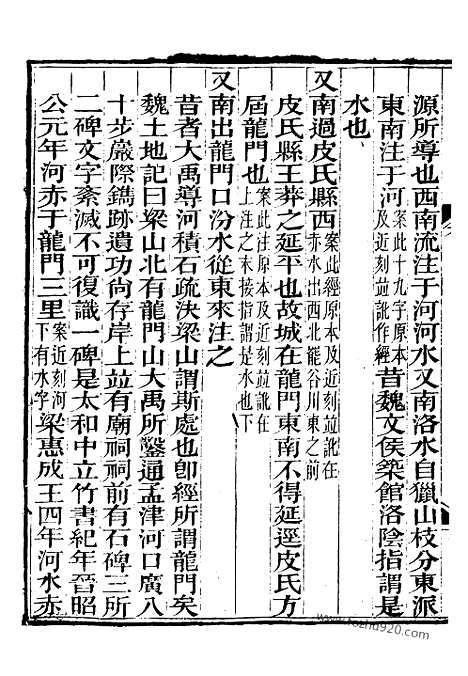 源所導也西南流注于河河水又南洛水自獵山枝分東派
東南注于河案此十九字原本及近刻並訛作經昔魏文侯築館洛陰指謂是
水也
又南過皮氏縣西案此經原本及近刻並訛在赤水出西北罷谷川東之前
皮氏縣王莽之延平也故城在龍門東南不得延逕皮氏方
屆龍門也案此注原本及近刻並訛在上注之末接指謂是水也下
又南出龍門口汾水從東來注之
昔者大禹導河積石疏決梁山謂斯處也卽經所謂龍門矣
魏土地記曰梁山北有龍門山大禹所鑿通孟津河口廣八
十步巖際鐫跡遺功尚存岸上並有廟祠祠前有石碑三所
二碑文字紊滅不可復識一碑是太和中立竹書紀年晉昭
公元年河赤于龍門三里案近刻河下有水字梁惠成王四年河水赤
www.fozhu920.com